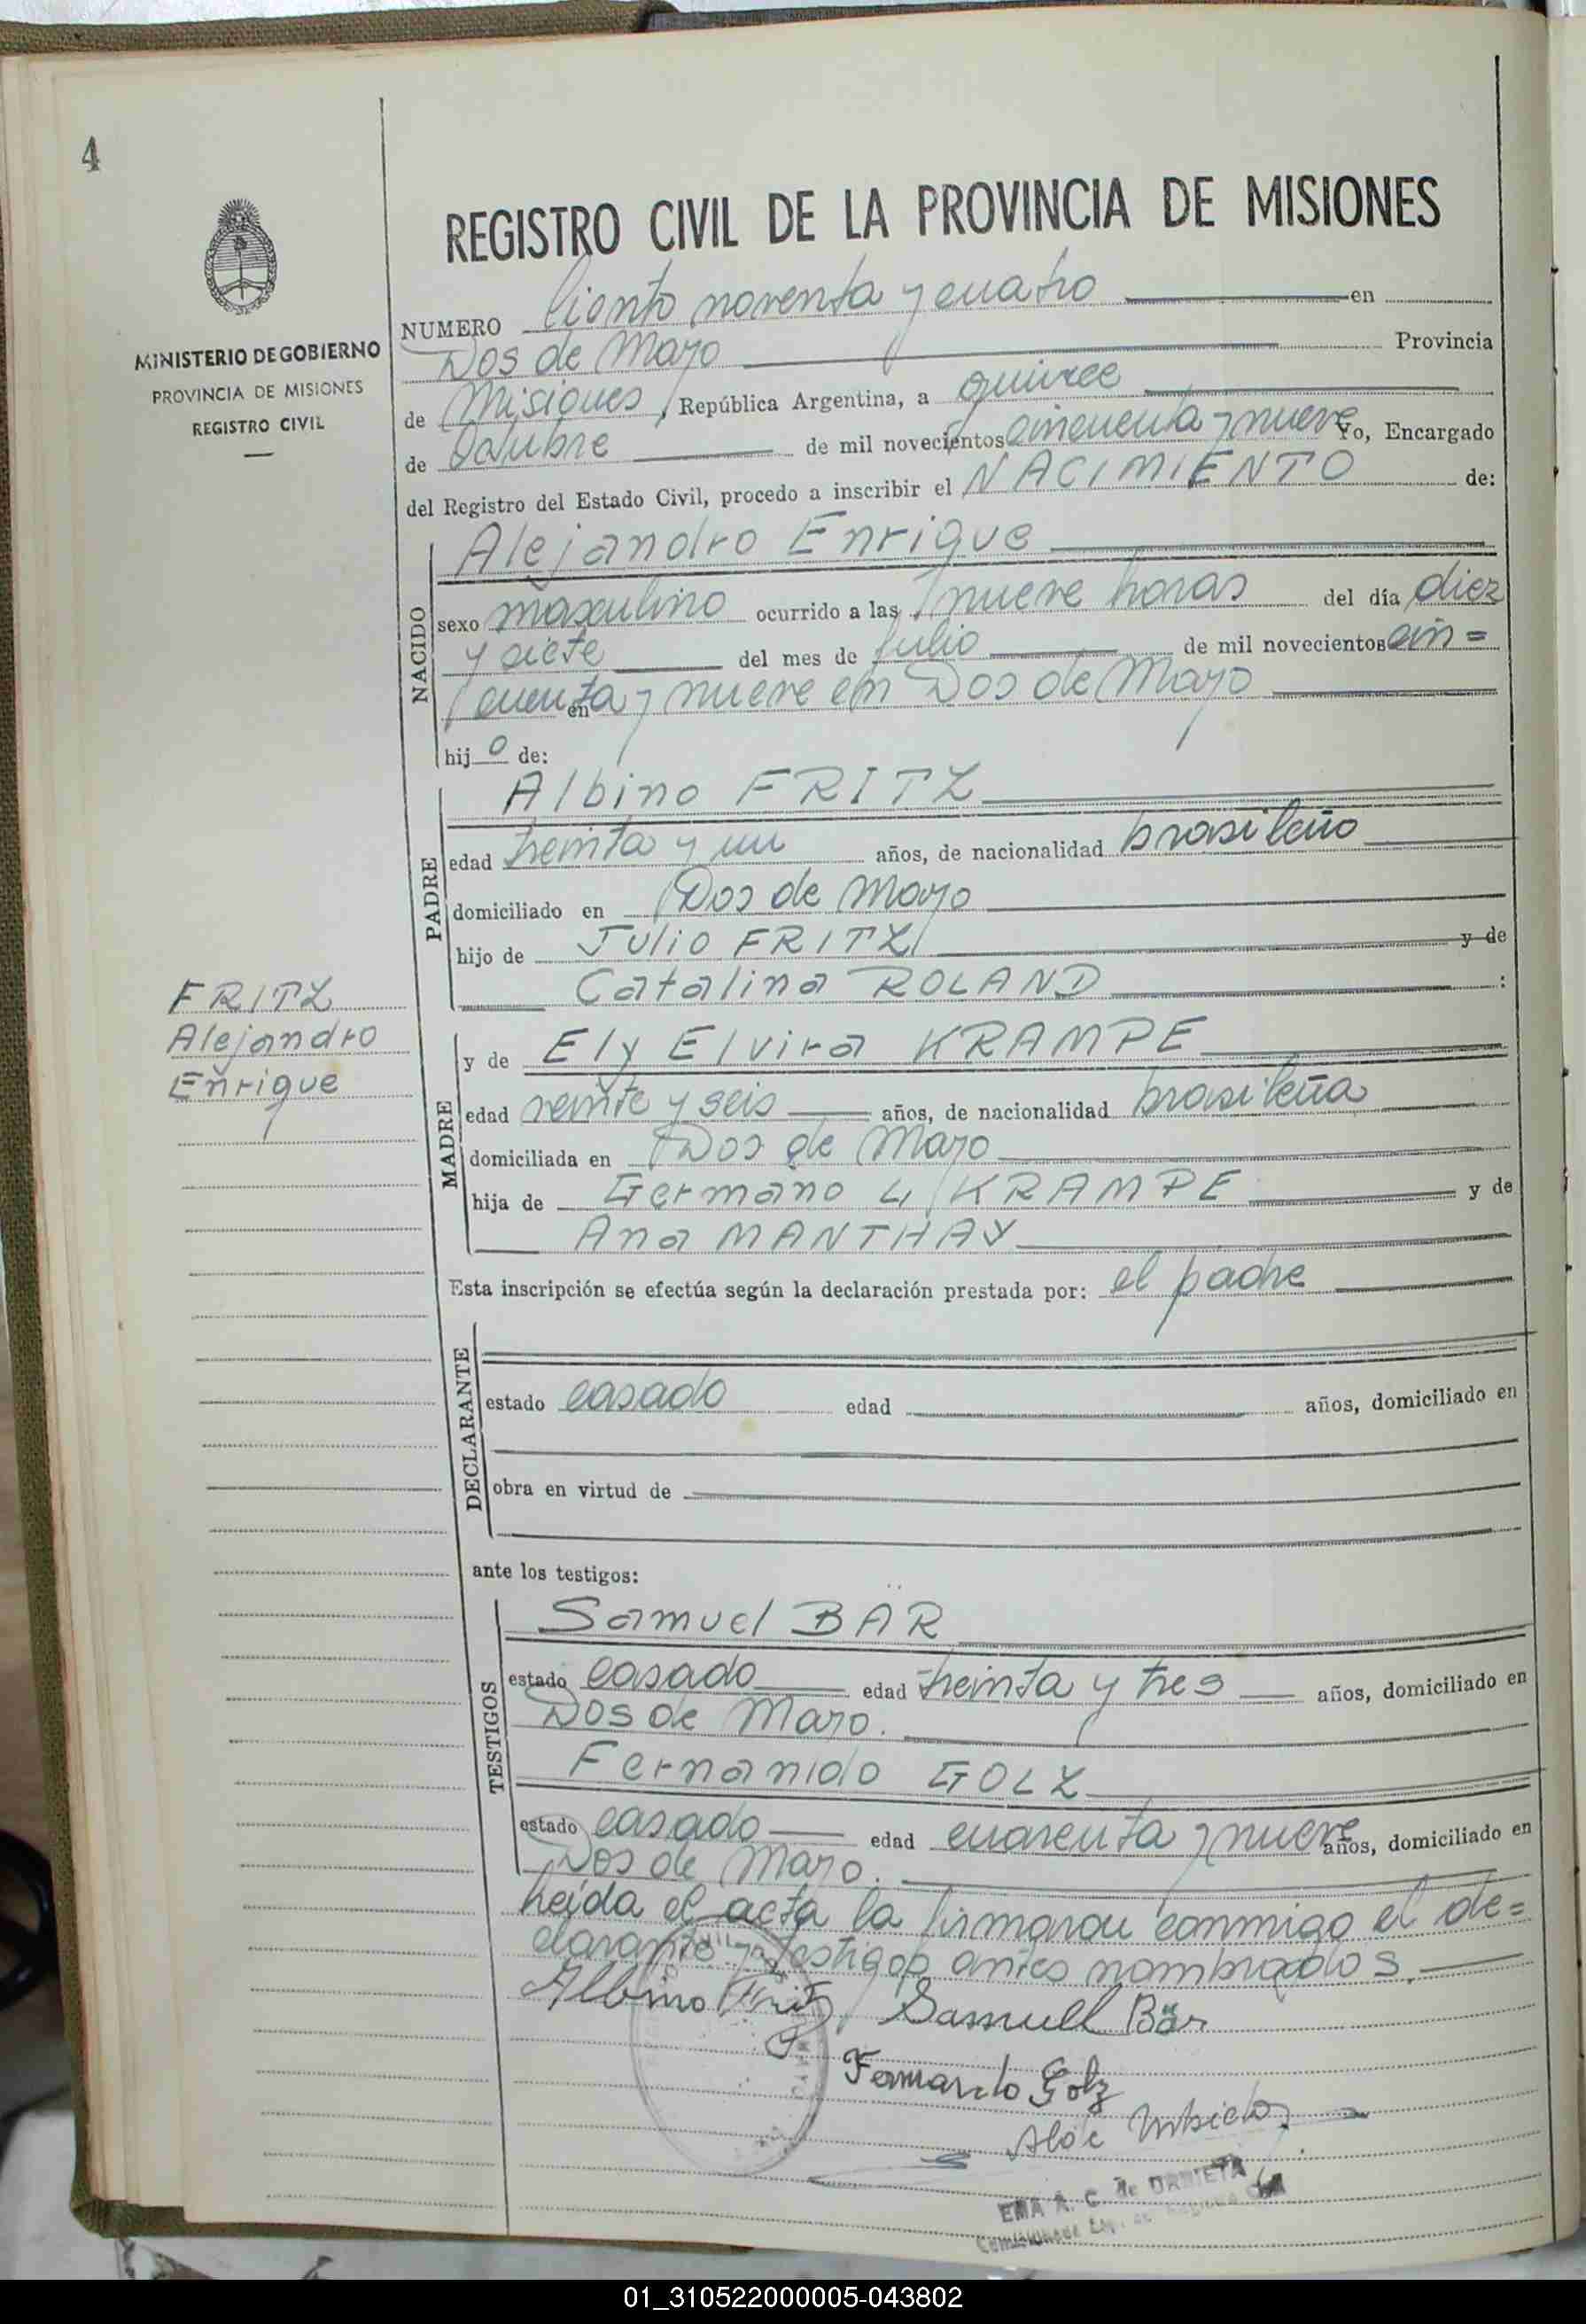 4
REGISTRO CIVIL DE LA PROVINCIA DE MISIONES
MINISTERIO DE GOBIERNO
PROVINCIA DE MISIONES
REGISTRO CIVIL
NUMERO Ciento noventa y cuatro en
Dos de Mayo Provincia
de Misiones, República Argentina, a quince
de Octubre de mil novecientos cincuenta y nueve Yo, Encargado
del Registro del Estado Civil, procedo a inscribir el NACIMIENTO de:
NACIDO
Alejandro Enrique
sexo masculino ocurrido a las nueve horas del día diez
y siete del mes de Julio de mil novecientos cin=
cuenta y nueve en en Dos de Mayo
hijo de:
PADRE
Albino FRITZ
edad treinta y un años, de nacionalidad brasileño
domiciliado en Dos de Mayo
hijo de Julio FRITZ y de
Catalina ROLAND :
FRITZ
Alejandro
Enrique
MADRE
y de Ely Elvira KRAMPE
edad veinte y seis años, de nacionalidad brasileña
domiciliada en Dos de Mayo
hija de Germano L, KRAMPE y de
Ana MANTHAY
Esta inscripción se efectúa según la declaración prestada por: el padre
DECLARANTE
estado casado edad años, domiciliado en
obra en virtud de
ante los testigos:
TESTIGOS
Samuel BÄR
estado casado edad treinta y tres años, domiciliado en
Dos de Mayo.
Fernando GOLZ
estado casado edad cuarenta y nueve años, domiciliado en
Dos de Mayo.
Leida el acta la firmaron conmigo el de=
clarante y testigos antes nombrados.
Albino Fritz Samuell Bär
Fernando Golz
EMA A. C. de URRIETA
01_310522000005-043802